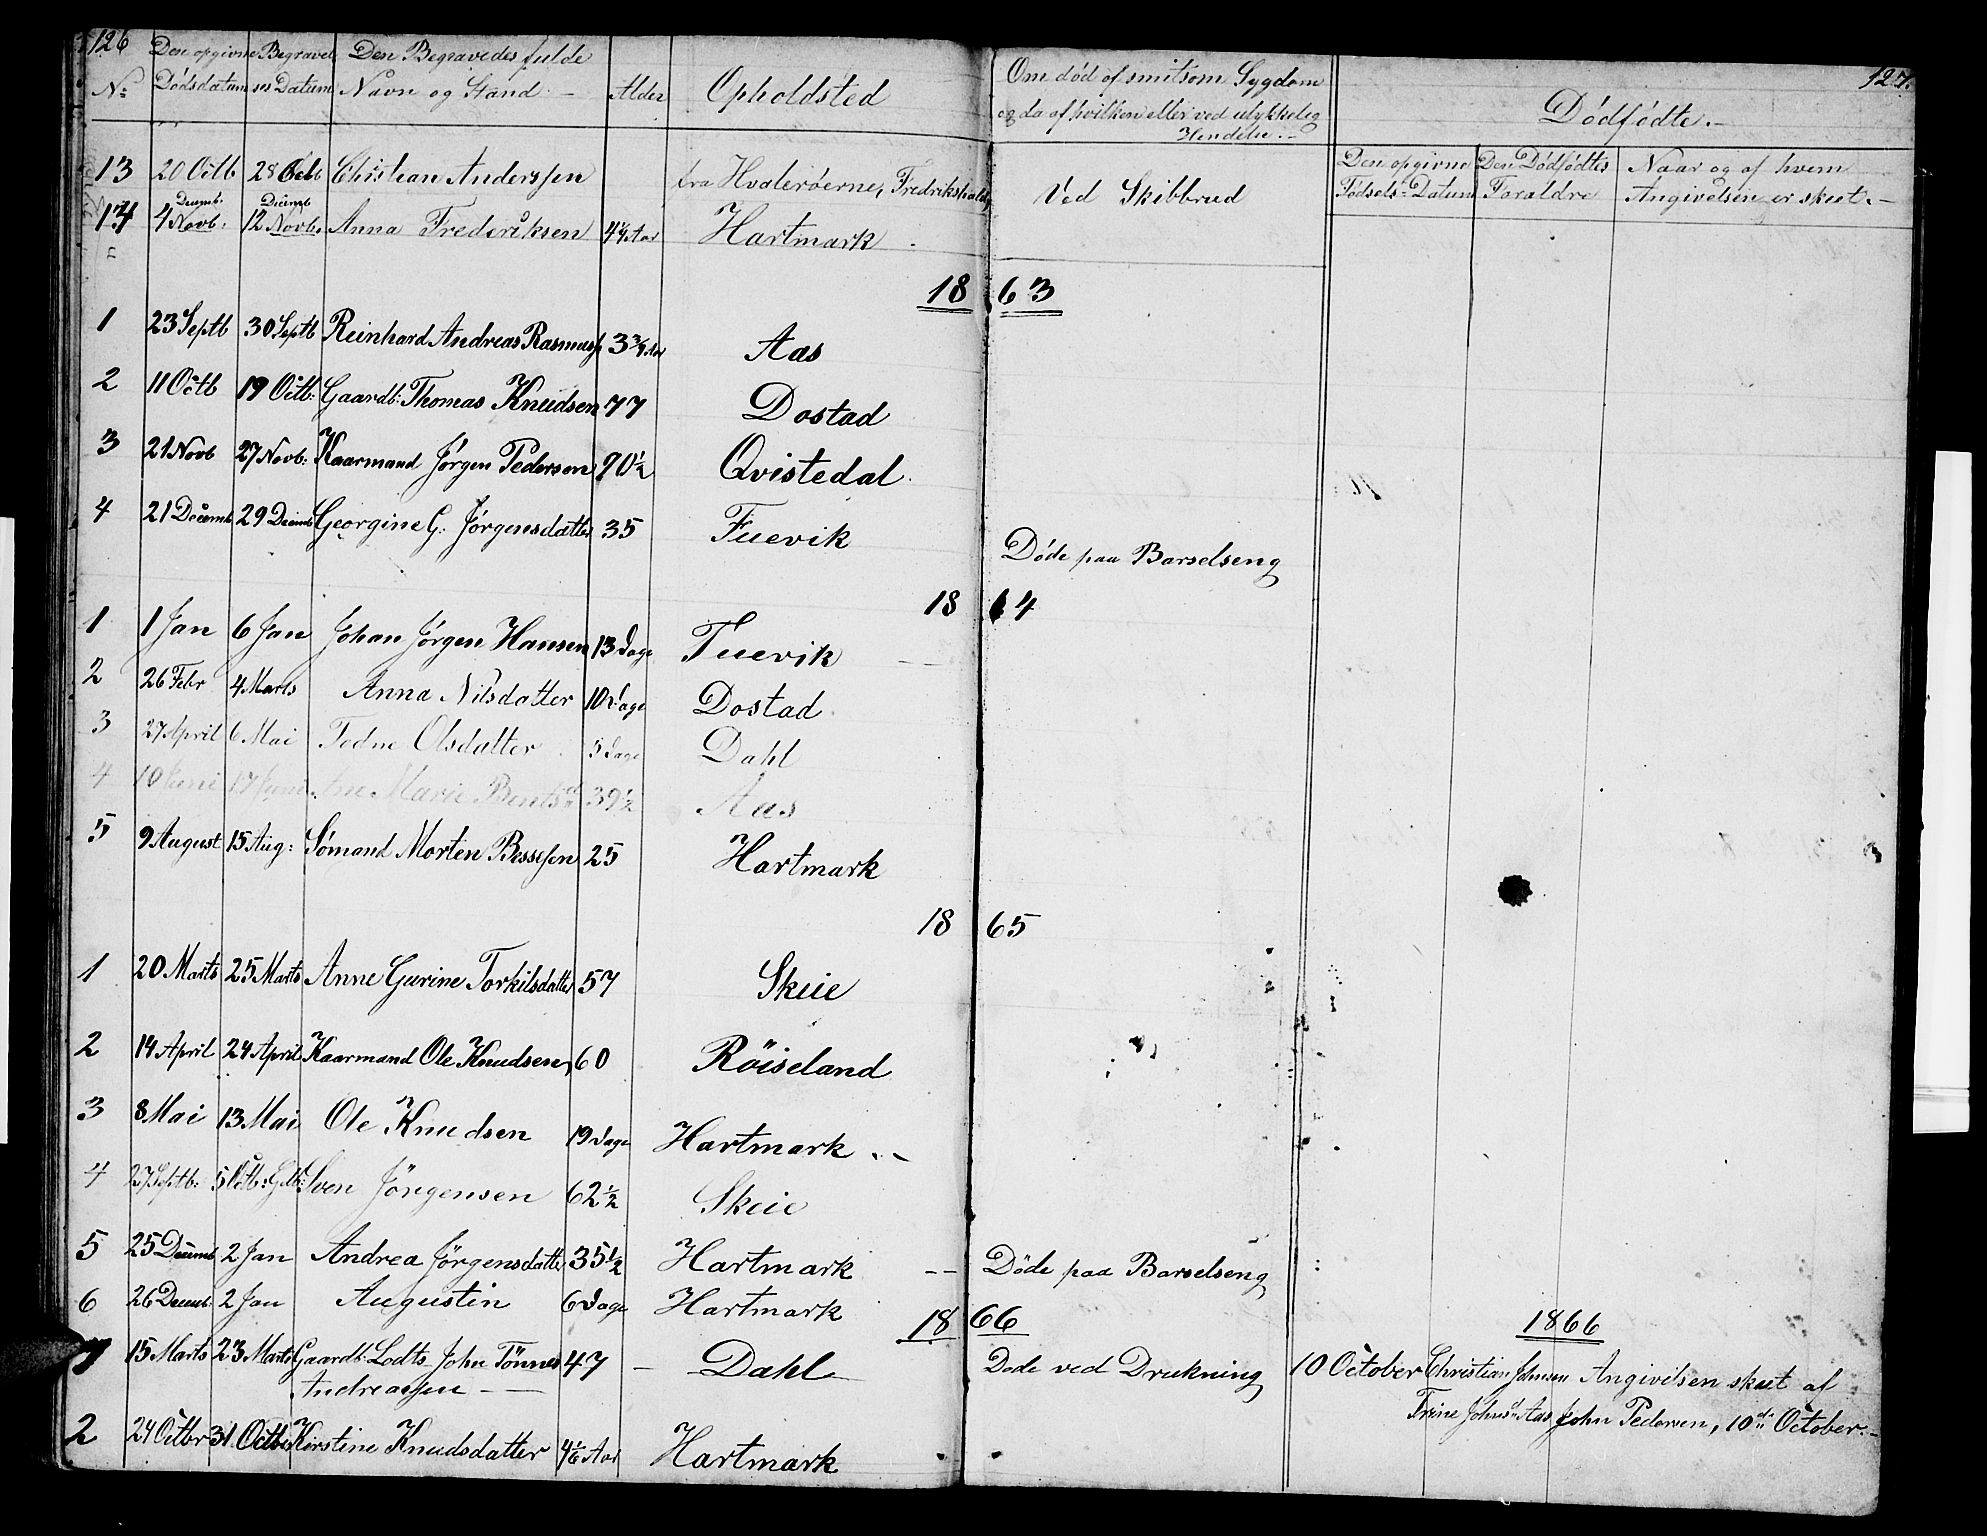 126
No Den opgivne Dødsdatum Begravelses Datum Den Begravedes fulde Navn og Stand. Alder Opholdsted Om død af smitsom Sygdom og da af hvilken eller ved ulykkelig Hendelse.
127.
Dødfødte.
Den opgivne Fødsels-Datum Den Dødfødtes Foraldre Naar og af hvem Angivelsen er skeet.
13 20 Octb 28 Octb Christian Anderssen fra Hvalerøerne, Fredrikshald, Ved Skibbrud
14 4 Decemb: Novb. 12 Decemb Novb. Anna Frederiksen 4¼ Aar Hartmark
1863
1 23 Septb 30 Septb Reinhard Andreas Rasmuss 3¾ Aar Aas
2 11 Octb 19 Octb: Gaardb: Thomas Knudsen 77 Dostad
3 21 Novb 27 Novb: Kaarmand Jørgen Pedersen 70½ Qvistedal.
4 21 Decemb 29 Decemb Georgine G. Jørgensdatter 35 Fuevik Døde paa Barselseng
1864
1 1 Jan 6 Jan Johan Jørgen Hansen 13 Dage Fuevik
2 26 Febr 4 Marts Anna Nilsdatter 10 Dage Dostad
3 27 April 6 Mai Todne Olsdatter 5 Dage Dahl
4 10 Juni 17 Juni Ane Marie Bentsd 39½ Aas
5 9 August 15 Aug: Sømand Morten Bessesen 25 Hartmark
1865
1 20 Marts 25 Marts Anne Gurine Torkilsdatter 57 Skeie
2 14 April 24 April Kaarmand Ole Knudsen, 60 Röiseland
3 8 Mai 13 Mai Ole Knudsen 19 Dage Hartmark.
4 27 Septb: 5 Octb: Gdb: Sven Jörgensen 62½ Skeie
5 25 Decemb 2 Jan Andrea Jörgensdatter 35½ Hartmark Döde paa Barselseng
6 26 Decemb: 2 Jan Augustin 6 Dage Hartmark
1866
1866
1 15 Marts 23 Marts Gaardb: Lodts John Tönnes 47 Dahl Dode ved Drukning 10 October Christian Johnsen Angivelsen skeet af
Andreassen Trine Johnsd Aas John Pedersen, 10de October.
2 24 Octbr 31 Octbr Kirstine Knudsdatter 4⅙ Aar Hartmark